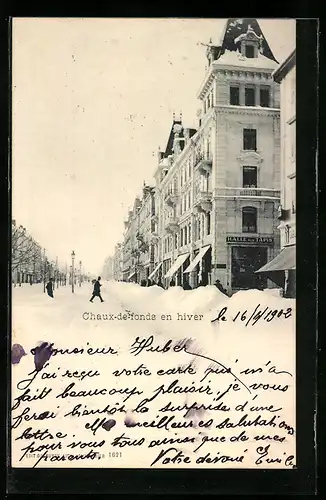 HALLE AUX TAPIS
Chaux-de-fonds en hiver
le 16/9/1902
Monsieur Huber
J'ai reçu votre carte qui m'a
fait beaucoup plaisir, je vous
ferai bientôt la surprise d'une
lettre. Meilleures salutations
pour vous tous ainsi que de mes
parents.
Votre dévoué Emile
1621